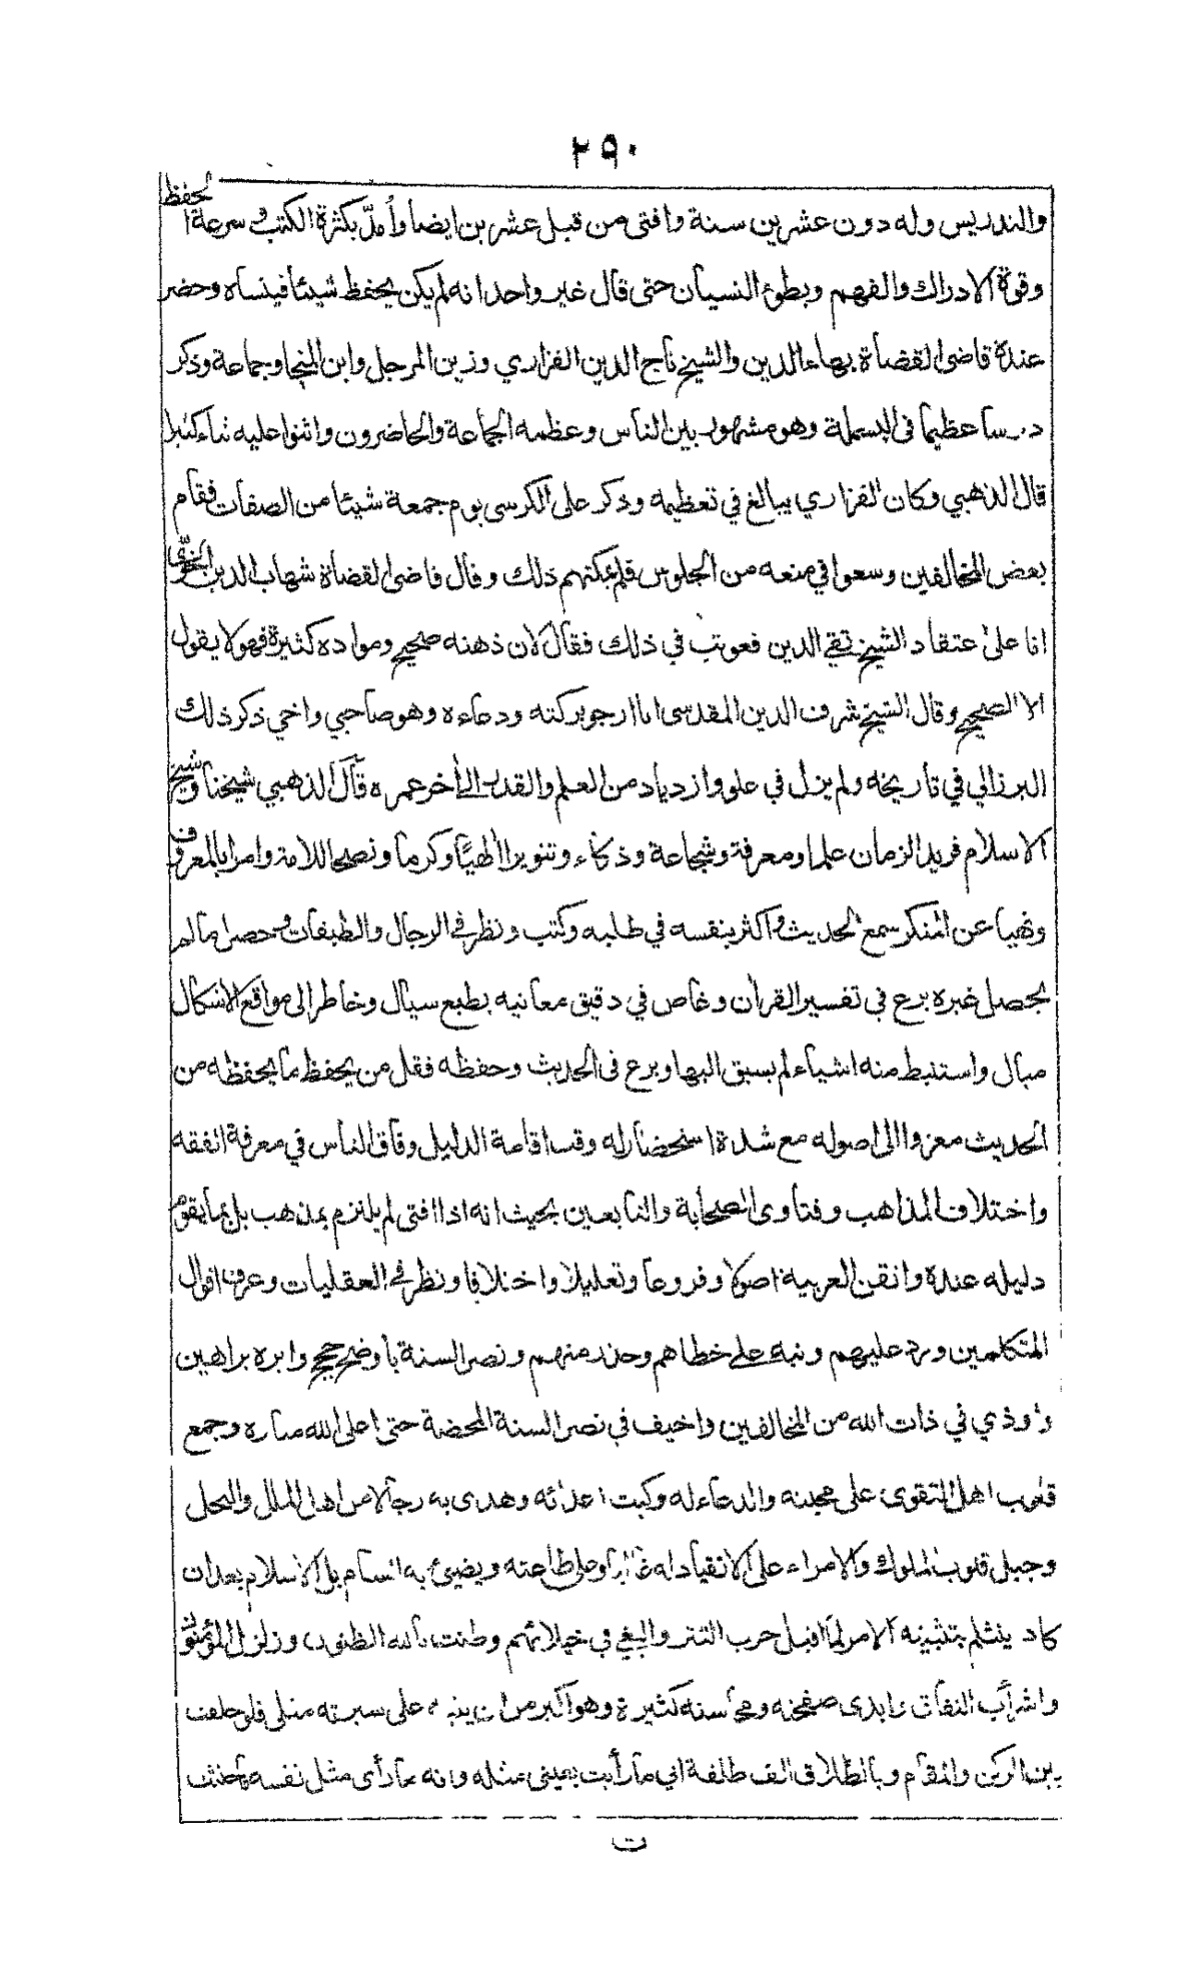 ٢٩٠
والتدريس وله دون عشرين سنة وافتى من قبل عشرين ايضا وأمدّ بكثرة الكتب وسرعة الحفظ
وقوة الادراك والفهم وبطوء النسيان حتى قال غير واحد انه لم يكن يحفظ شيئا فينساه وحضر
عنده قاضى القضاة بهاء الدين والشيخ تاج الدين الفزاري وزين المرجل وابن المنجا وجماعة وذكر
درسا عظيما فى البسملة وهو مشهور بين الناس وعظمه الجماعة والحاضرون واثنوا عليه ثناء كثيرا
قال الذهبي وكان الفزاري يبالغ في تعظيمه وذكر على الكرسى يوم جمعة شيئا من الصفات فقام
بعض المخالفين وسعوا في منعه من الجلوس فلم يمكنهم ذلك وقال قاضى القضاة شهاب الدين الخوّى
انا على اعتقاد الشيخ تقي الدين فعوتب في ذلك فقال لان ذهنه صحيح ومواده كثيرة فهو لا يقول
الا الصحيح وقال الشيخ شرف الدين المقدسى انا ارجو بركته ودعاءه وهو صاحبي واخي ذكر ذلك
البرزالي في تاريخه ولم يزل في علو وازدياد من العلم والقدر الى آخر عمره قال الذهبي شيخنا وشيخ
الاسلام فريد الزمان علما ومعرفة وشجاعة وذكاء وتنويرا الهيا وكرما ونصحا للامة وامرا بالمعروف
ونهيا عن المنكر سمع الحديث واكثر بنفسه في طلبه وكتب ونظر في الرجال والطبقات وحصل ما لم
يحصل غيره برع فى تفسير القران وغاص في دقيق معانيه بطبع سيال وخاطر الى مواقع الاشكال
ميال واستنبط منه اشياء لم يسبق اليها وبرع فى الحديث وحفظه فقل من يحفظ ما يحفظه من
الحديث معزوا الى اصوله مع شدة استحضار له وقت اقامة الدليل وفاق الناس في معرفة الفقه
واختلاف المذاهب وفتاوى الصحابة والتابعين بحيث انه اذا افتى لم يلتزم بمذهب بل بما يقوم
دليله عنده واتقن العربية اصولا وفروعا وتعليلا واختلافا ونظر في العقليات وعرف اقوال
المتكلمين ورد عليهم ونبه على خطاهم وحذر منهم ونصر السنة بأوضح حجج وابره براهين
وأوذي في ذات الله من المخالفين واخيف في نصر السنة المحضة حتى اعلى الله مناره وجمع
قلوب اهل التقوى على محبته والدعاء له وكبت اعدائه وهدى به رجالا من اهل الملل والنحل
وجبل قلوب الملوك والامراء على الانقياد له غالبا وعلى طاعته ويضيئ به الشام بل الاسلام بعد ان
كاد ينثلم بتثبيته الامر لما اقبل حرب التتر والبغي في خيلائهم وظنت بالله الظنون وزلزل المؤمنون
واشرأب النفاق وابدى صفحته ومحاسنه كثيرة وهو اكبر من ان ينبه على سيرته مثلى فلو حلفت
بين الركن والمقام وبالطلاق الف طلقة اني ما رأيت بعينى مثله وانه ما رأى مثل نفسه لما حنثت
ت